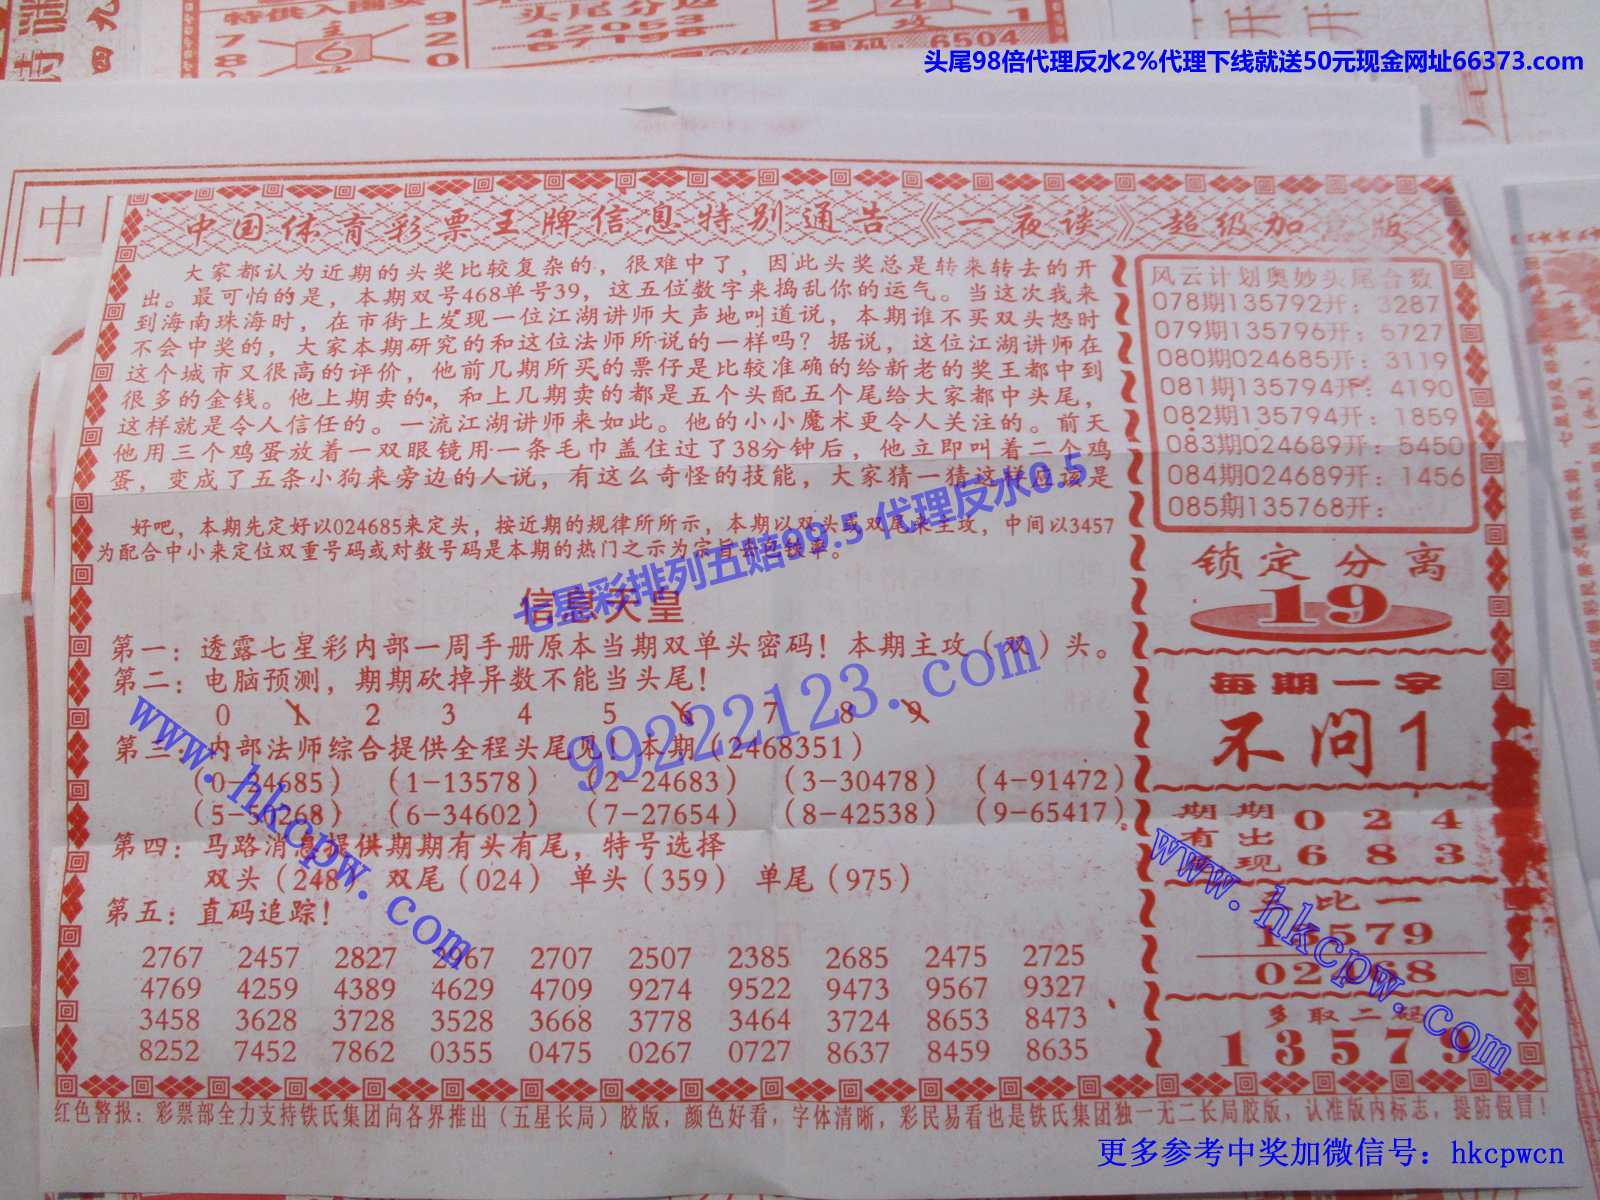 特供入围奖
头尾分边
7 9
6 2
8 0
42053
67198
8 4 1
攻
6504
头尾98倍代理反水2%代理下线就送50元现金网址66373.com
中国体育彩票王牌信息特别通告《一夜谈》超级加 版
大家都认为近期的头奖比较复杂的，很难中了，因此头奖总是转来转去的开
出。最可怕的是，本期双号468单号39，这五位数字来捣乱你的运气。当这次我来
到海南珠海时，在市街上发现一位江湖讲师大声地叫道说，本期谁不买双头怒时
不会中奖的，大家本期研究的和这位法师所说的一样吗？据说，这位江湖讲师在
这个城市又很高的评价，他前几期所买的票仔是比较准确的给新老的奖王都中到
很多的金钱。他上期卖的，和上几期卖的都是五个头配五个尾给大家都中头尾，
这样就是令人信任的。一流江湖讲师来如此。他的小小魔术更令人关注的。前天
他用三个鸡蛋放着一双眼镜用一条毛巾盖住过了38分钟后，他立即叫着二个鸡
蛋，变成了五条小狗来旁边的人说，有这么奇怪的技能，大家猜一猜这样应该是
好吧，本期先定好以024685来定头，按近期的规律所所示，本期以双头或双尾来主攻，中间以3457
为配合中小来定位双重号码或对数号码是本期的热门之示为宗旨 率。
七星彩排列五赔99.5 代理反水0.5
信息天皇
第一：透露七星彩内部一周手册原本当期双单头密码！本期主攻（双）头。
第二：电脑预测，期期砍掉异数不能当头尾！
0 1 2 3 4 5 6 7 8 9
第三：内部法师综合提供全程头尾见！本期（2468351）
（0-24685） （1-13578） （2-24683） （3-30478） （4-91472）
（5-50268） （6-34602） （7-27654） （8-42538） （9-65417）
第四：马路消息提供期期有头有尾，特号选择
双头（248 双尾（024） 单头（359） 单尾（975）
第五：直码追踪！
2767 2457 2827 2967 2707 2507 2385 2685 2475 2725
4769 4259 4389 4629 4709 9274 9522 9473 9567 9327
3458 3628 3728 3528 3668 3778 3464 3724 8653 8473
8252 7452 7862 0355 0475 0267 0727 8637 8459 8635
99222123.com
www.hkcpw.com
风云计划奥妙头尾合数
078期135792开：3287
079期135796开：5727
080期024685开：3119
081期135794开：4190
082期135794开：1859
083期024689开：5450
084期024689开：1456
085期135768开：
锁定分离
19
每期一字
不问1
期期 0 2 4
有出 6 8 3
现
比一
13579
02468
多取二码
13579
www.hkcpw.com
红色警报：彩票部全力支持铁氏集团向各界推出（五星长局）胶版，颜色好看，字体清晰，彩民易看也是铁氏集团独一无二长局胶版，认准版内标志，提防假冒！
更多参考中奖加微信号：hkcpwcn